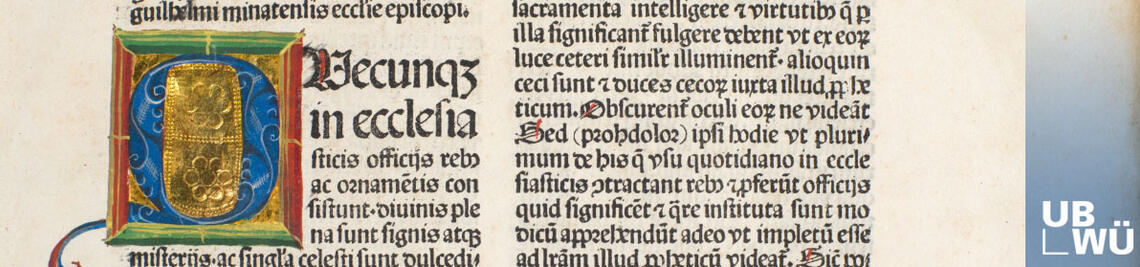 guilhelmi minatensis ecclīe episcopi.
Uecunqꝫ
in ecclesia
sticis officijs rebꝰ
ac ornamētis con
sistunt·diuinis ple
na sunt signis atqꝫ
misterijs·ac singl̄a celesti sunt dulcedi⸗
sacramenta intelligere ⁊ virtutibꝰ q̄ ꝑ
illa significant̄ fulgere debent vt ex eoꝝ
luce ceteri simil̄r illuminent̄· alioquin
ceci sunt ⁊ duces cecoꝝ iuxta illud ꝓphe
ticum. Obscurent̄ oculi eoꝝ ne videāt
Sed (prohdolor) ipsi hodie vt pluri⸗
mum de his q̄ vsu quotidiano in eccle
siasticis ꝯtractant rebꝰ ⁊ ꝓferūt officijs
quid significēt ⁊ q̄re instituta sunt mo
dicū apprehendūt adeo vt impletū esse
ad lr̄am illud ꝓpheticū videat̄. Sic
UB
WÜ